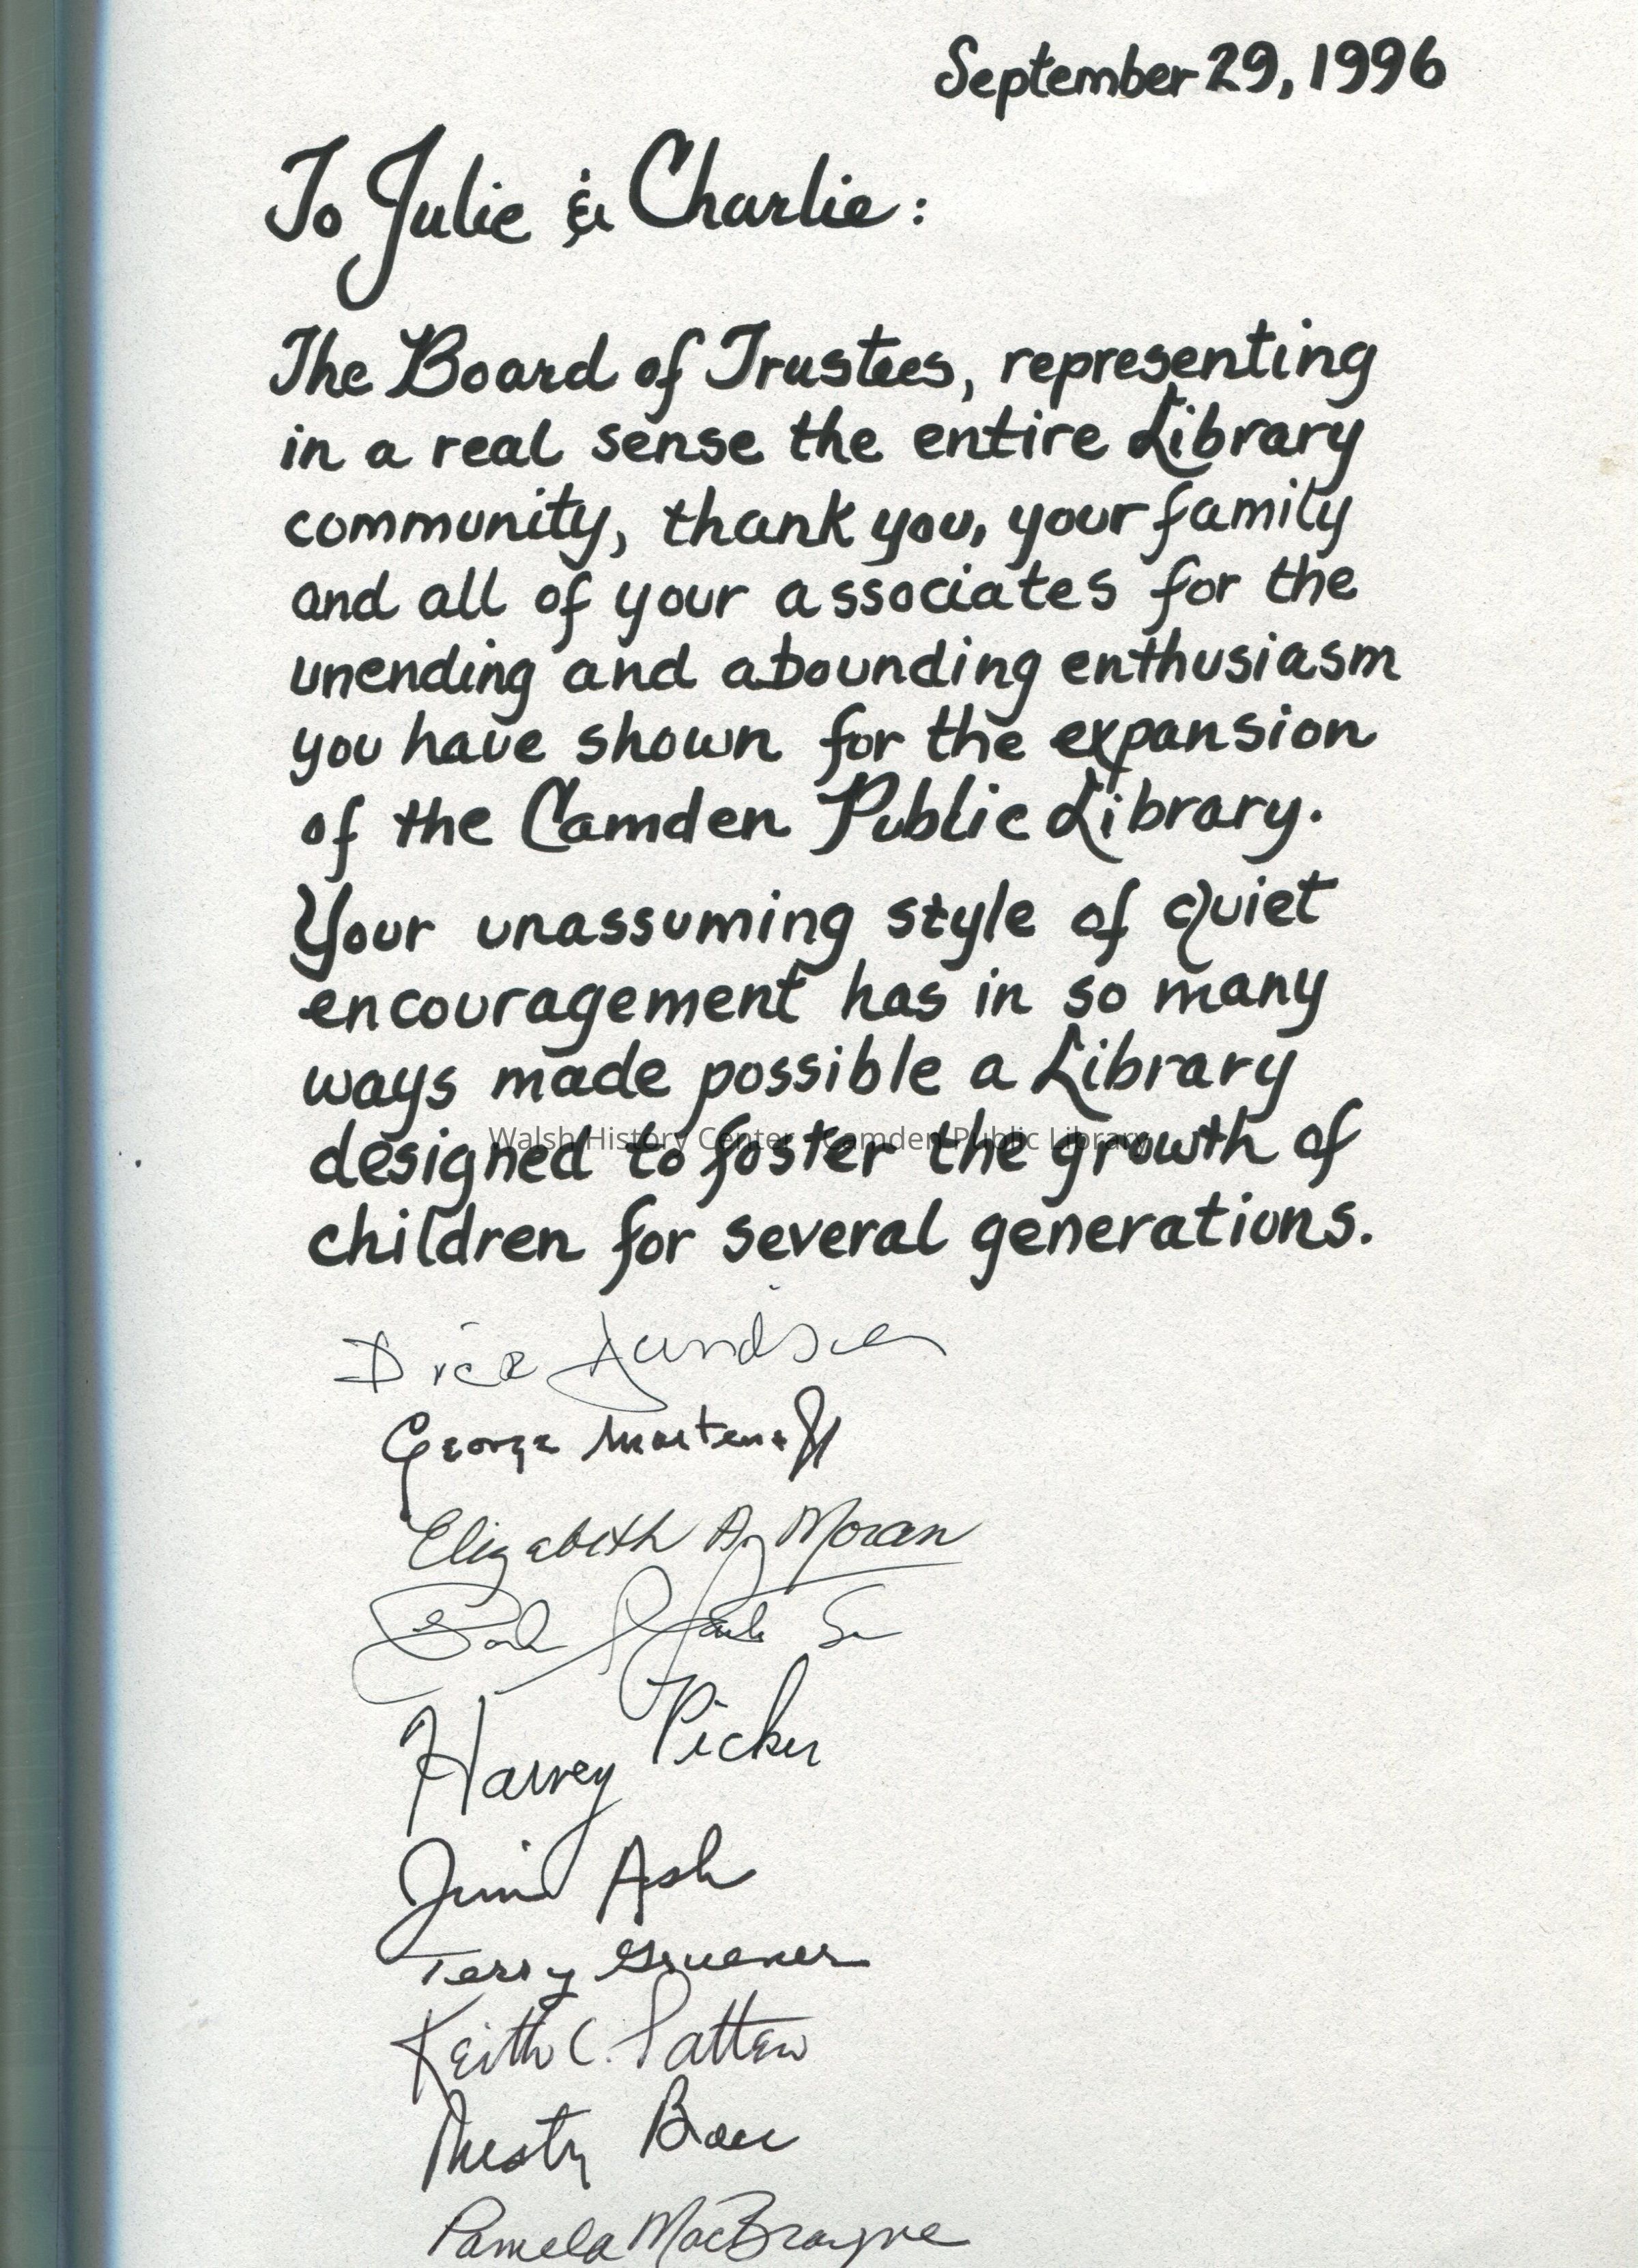 September 29, 1996
To Julie & Charlie:
The Board of Trustees, representing
in a real sense the entire Library
community, thank you, your family
and all of your associates for the
unending and abounding enthusiasm
you have shown for the expansion
of the Camden Public Library.
Your unassuming style of quiet
encouragement has in so many
ways made possible a Library
Walsh History Center - Camden Public Library
designed to foster the growth of
children for several generations.
Dick
George
Elizabeth A. Moran
Harvey Picker
Ash
Terry Gruener
Keith C. Patten
Rusty
Pamela MacBrayne